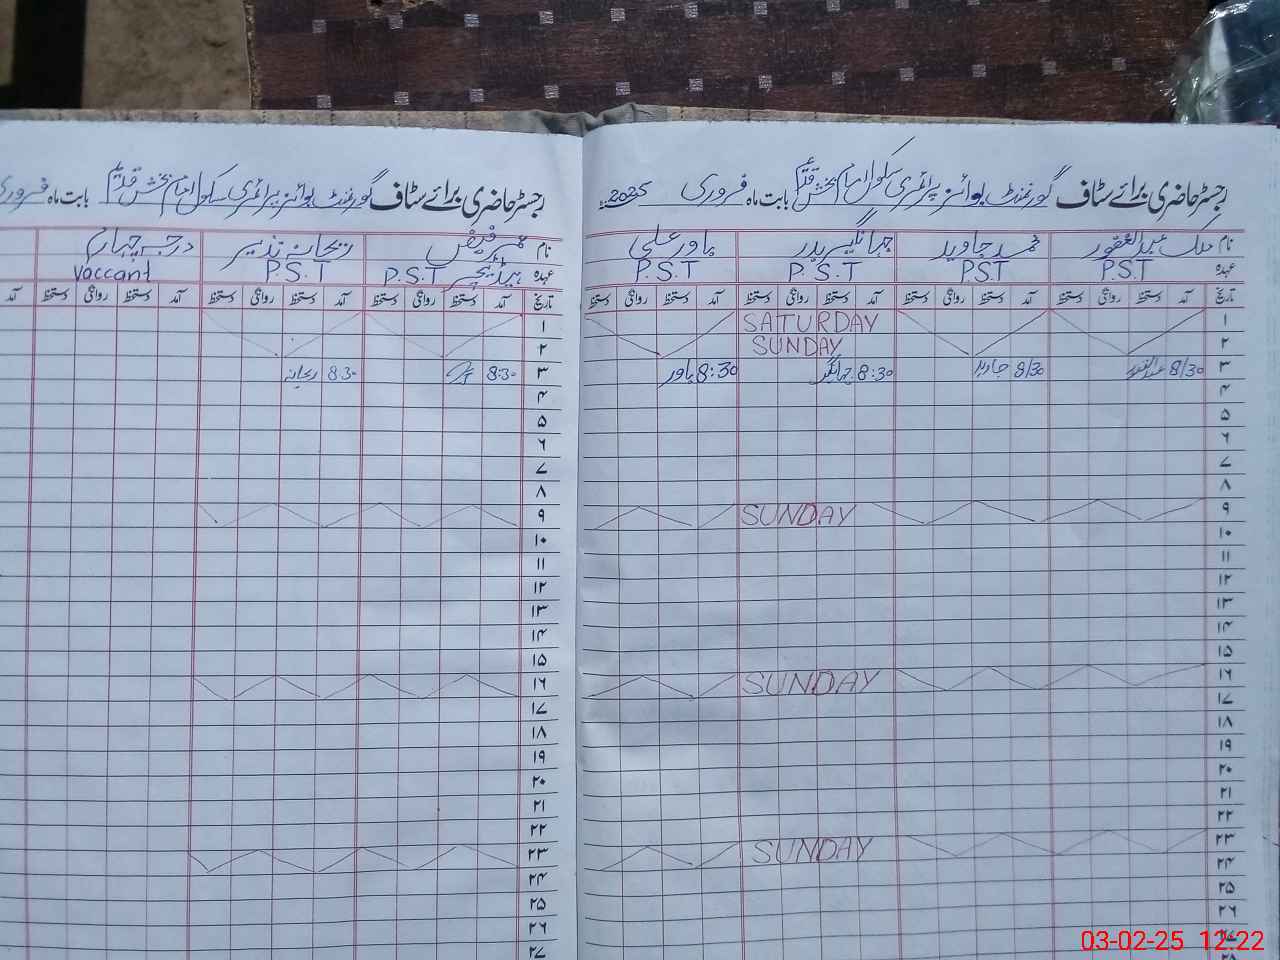 رجسٹر حاضری برائے سٹاف گورنمنٹ بوائز پرائمری سکول امام بخش قلم بابت ماہ فروری 2025
نام ملک عبدالغفور محمد جاوید جہانگیر بدر یاور علی
عہدہ P.S.T PST P.S.T P.S.T
تاریخ آمد دستخط روانگی دستخط آمد دستخط روانگی دستخط آمد دستخط روانگی دستخط آمد دستخط روانگی دستخط
۱ SATURDAY
۲ SUNDAY
۳ 8/30 عبدالغفور 8/30 جاوید 8:30 جہانگیر 8:30 یاور
۴
۵
۶
۷
۸
۹ SUNDAY
۱۰
۱۱
۱۲
۱۳
۱۴
۱۵
۱۶ SUNDAY
۱۷
۱۸
۱۹
۲۰
۲۱
۲۲
۲۳ SUNDAY
۲۴
۲۵
۲۶
۲۷
۲۸
رجسٹر حاضری برائے سٹاف گورنمنٹ بوائز پرائمری سکول امام بخش قلم بابت ماہ فروری
نام ریحانہ نذیر درجہ چہارم
عہدہ ہیڈ ٹیچر P.S.T P.S.T Vaccant
تاریخ آمد دستخط روانگی دستخط آمد دستخط روانگی دستخط آمد دستخط روانگی دستخط آمد
۱
۲
۳ 8:30 8:30 ریحانہ
۴
۵
۶
۷
۸
۹
۱۰
۱۱
۱۲
۱۳
۱۴
۱۵
۱۶
۱۷
۱۸
۱۹
۲۰
۲۱
۲۲
۲۳
۲۴
۲۵
۲۶
۲۷
03-02-25 12:22